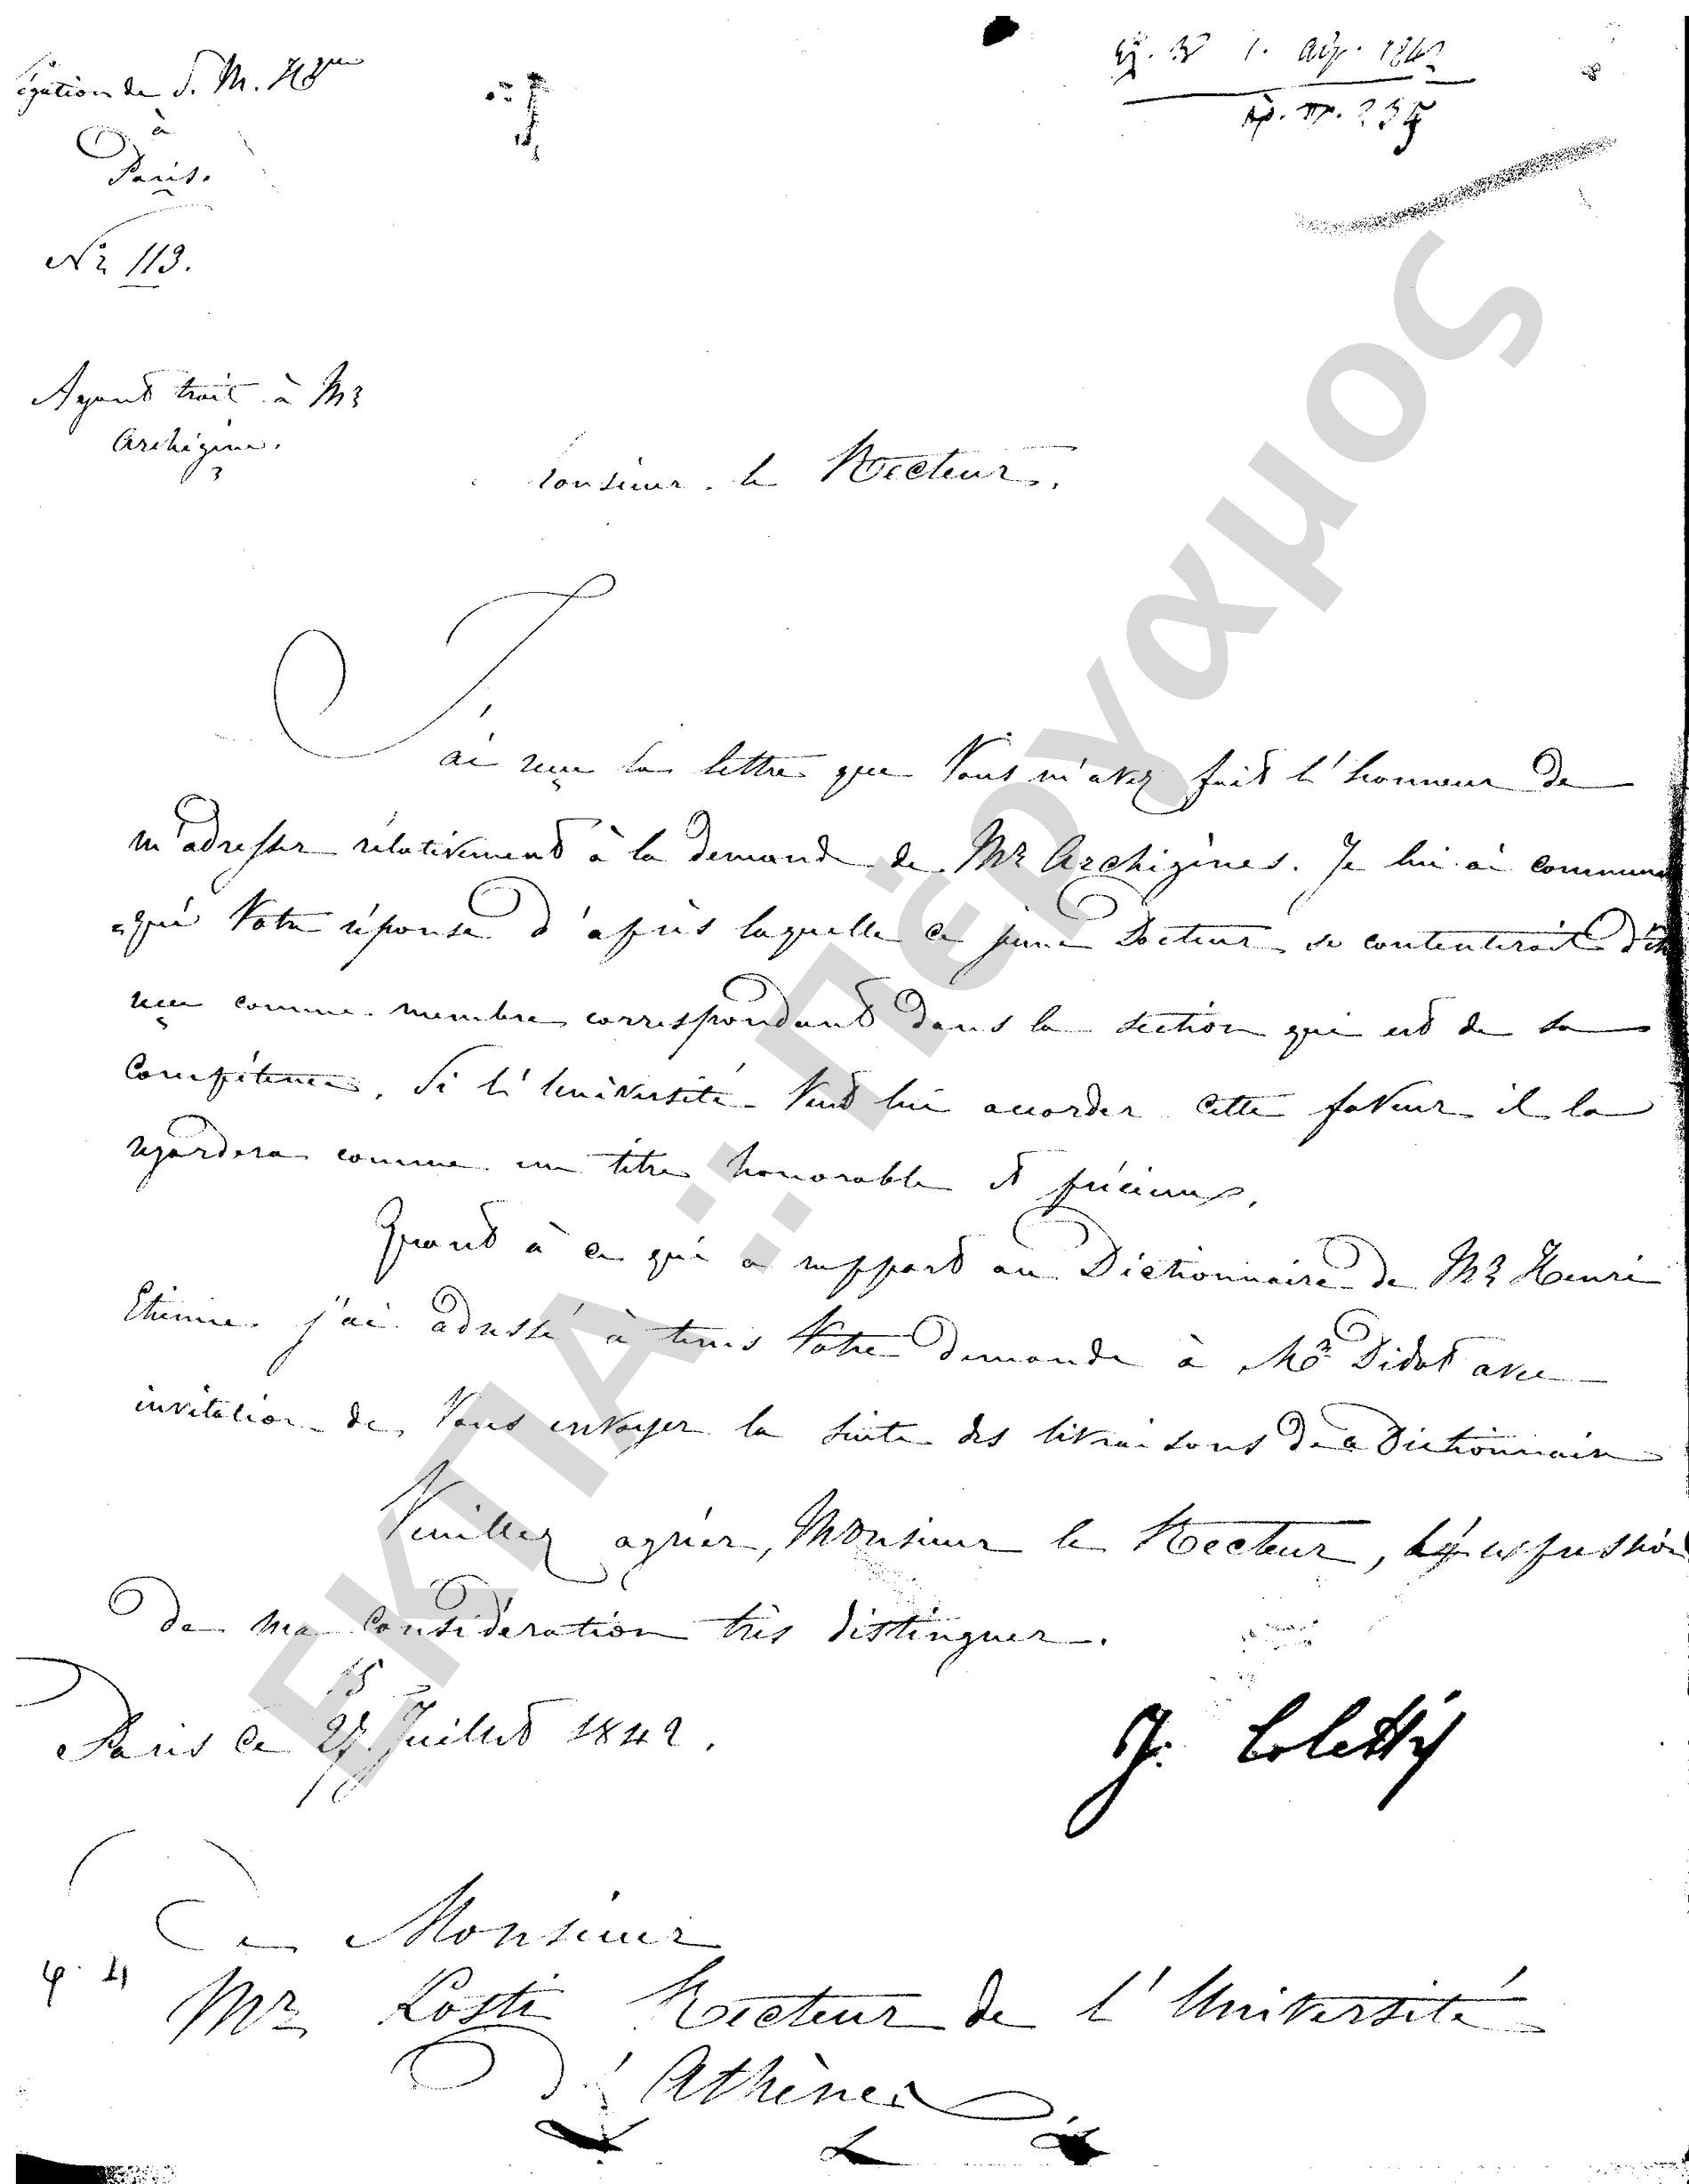 Légation de S. M. H^que
à
Paris.
Nr 113.
Αθ. τῃ 1. Αὐγ. 1842
ἀρ. πρ. 235
Ayant trait à Mr
Archigène.
Monsieur le Recteur.
J'ai reçu la lettre que Vous m'avez fait l'honneur de
m'adresser rélativement à la demande de Mr Archigènes. Je lui ai communi
=qué Votre réponse d'après laquelle ce jeune Docteur se contenterait d'être
reçu comme membre correspondant dans la section qui est de sa
Compétence. Si l'université Veut lui accorder cette faveur il la
regardera comme un titre honorable et précieux.
Quant à ce qui a rapport au Dictionnaire de Mr Henri
Etienne j'ai adressé à tems Votre demande à Mr Didot avec
invitation de Vous envoyer la suite des livraisons de ce Dictionnaire
Veuillez agréer, Monsieur le Recteur, l'expression
de ma considération très distinguer.
Paris ce 15/27 Juillet 1842.
J. Colettis
A Monsieur
φ. 4
Mr Costi Recteur de l'Université
d'Athènes
ΕΚΠΑ:: Πέργαμος